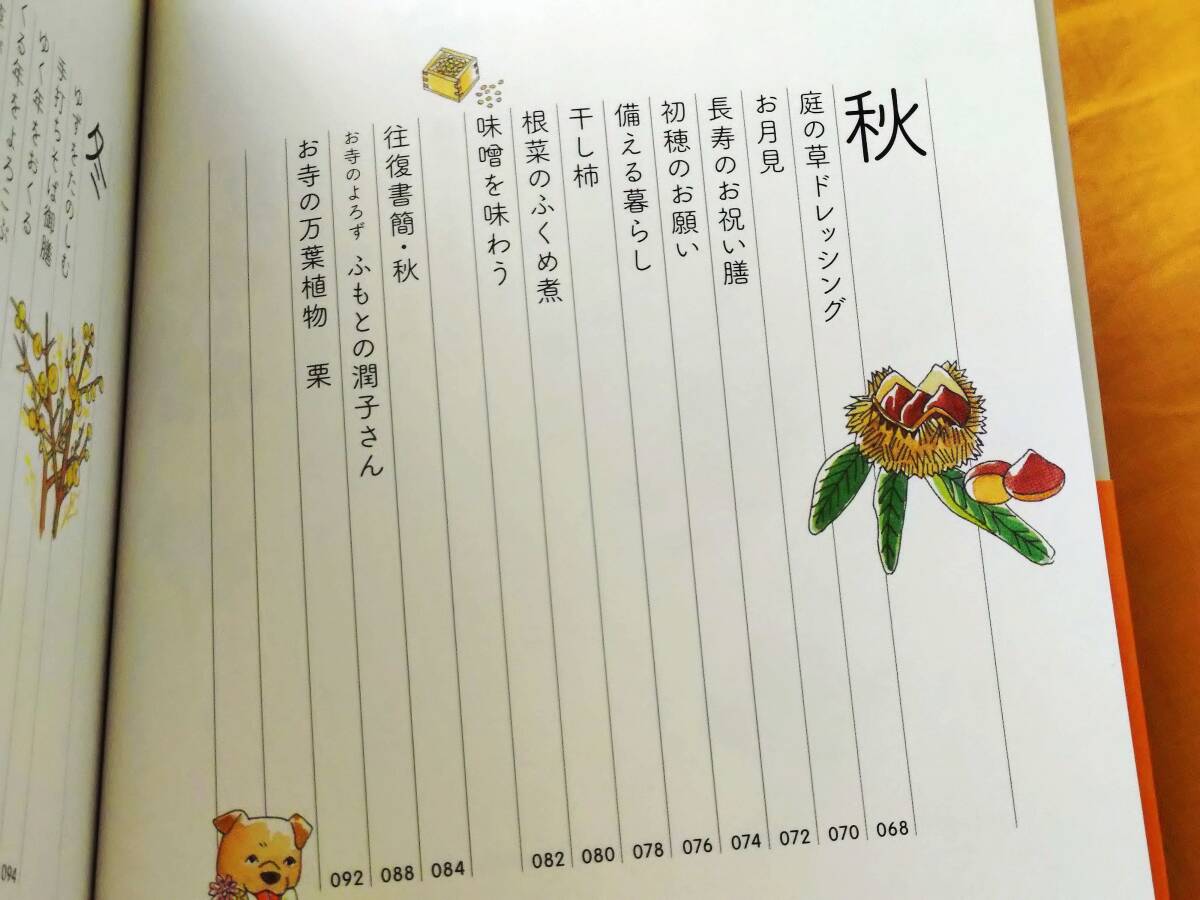 秋
庭の草ドレッシング 068
お月見 070
長寿のお祝い膳 072
初穂のお願い 074
備える暮らし 076
干し柿 078
根菜のふくめ煮 080
味噌を味わう 082
往復書簡・秋 084
お寺のよろず ふもとの潤子さん 088
お寺の万葉植物 栗 092
冬
ゆずをたのしむ 094
手打ちそば御膳
ゆく年をおくる
くる年をよろこぶ